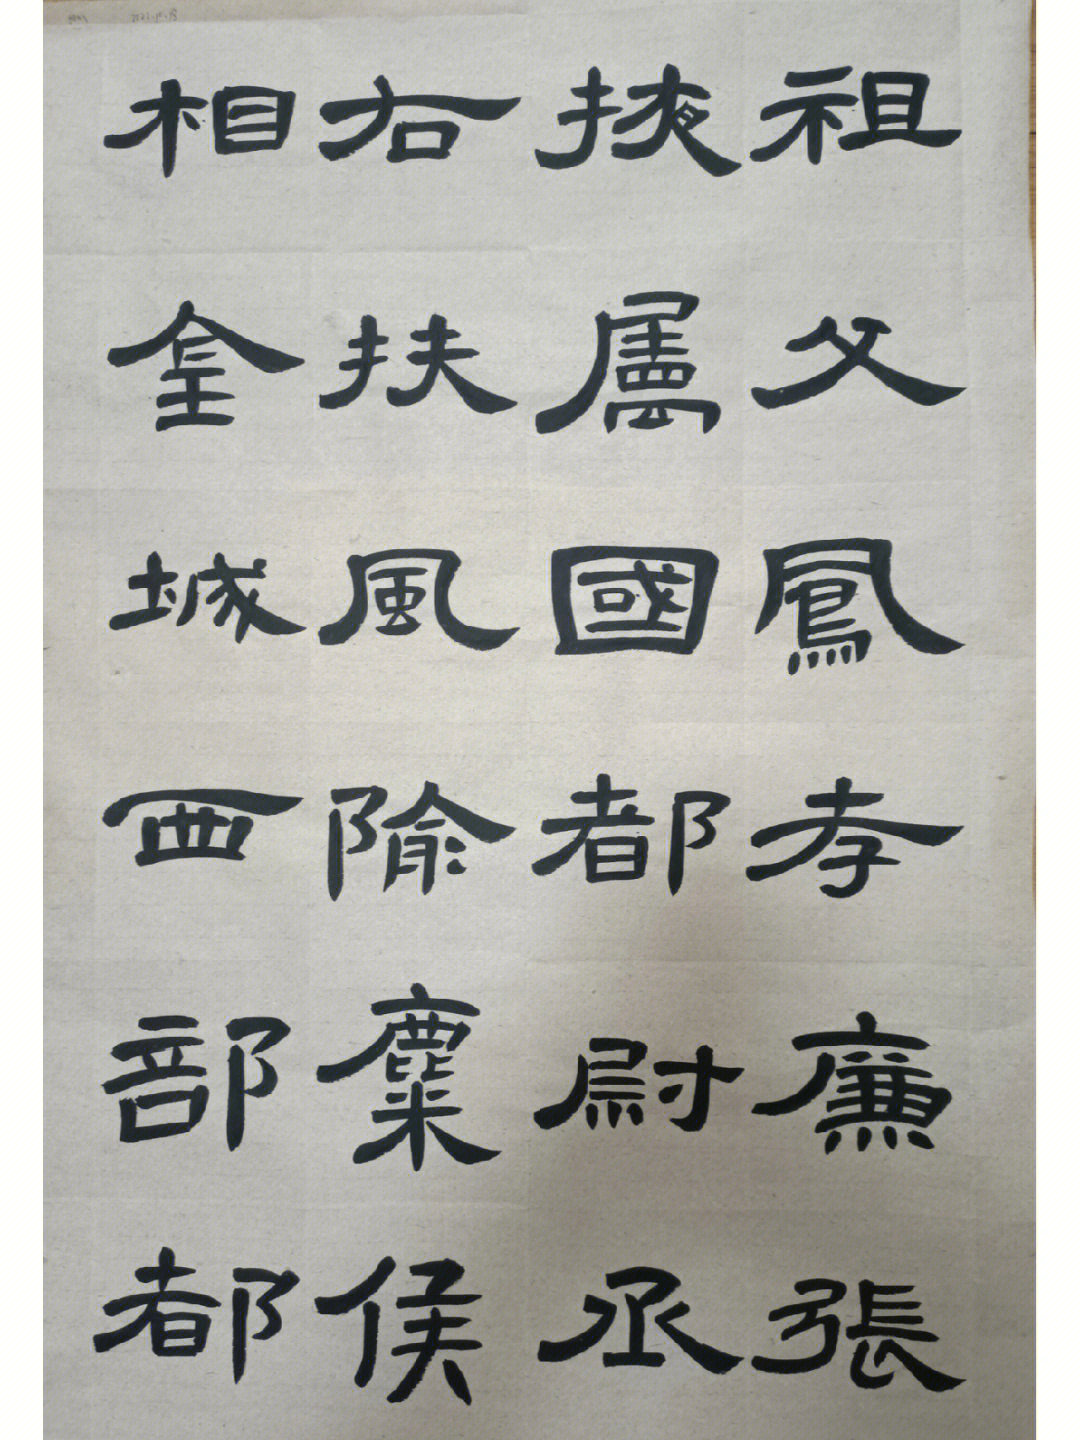 祖父鳳孝廉張
掖屬國都尉丞
右扶風隃麋侯
相金城西部都